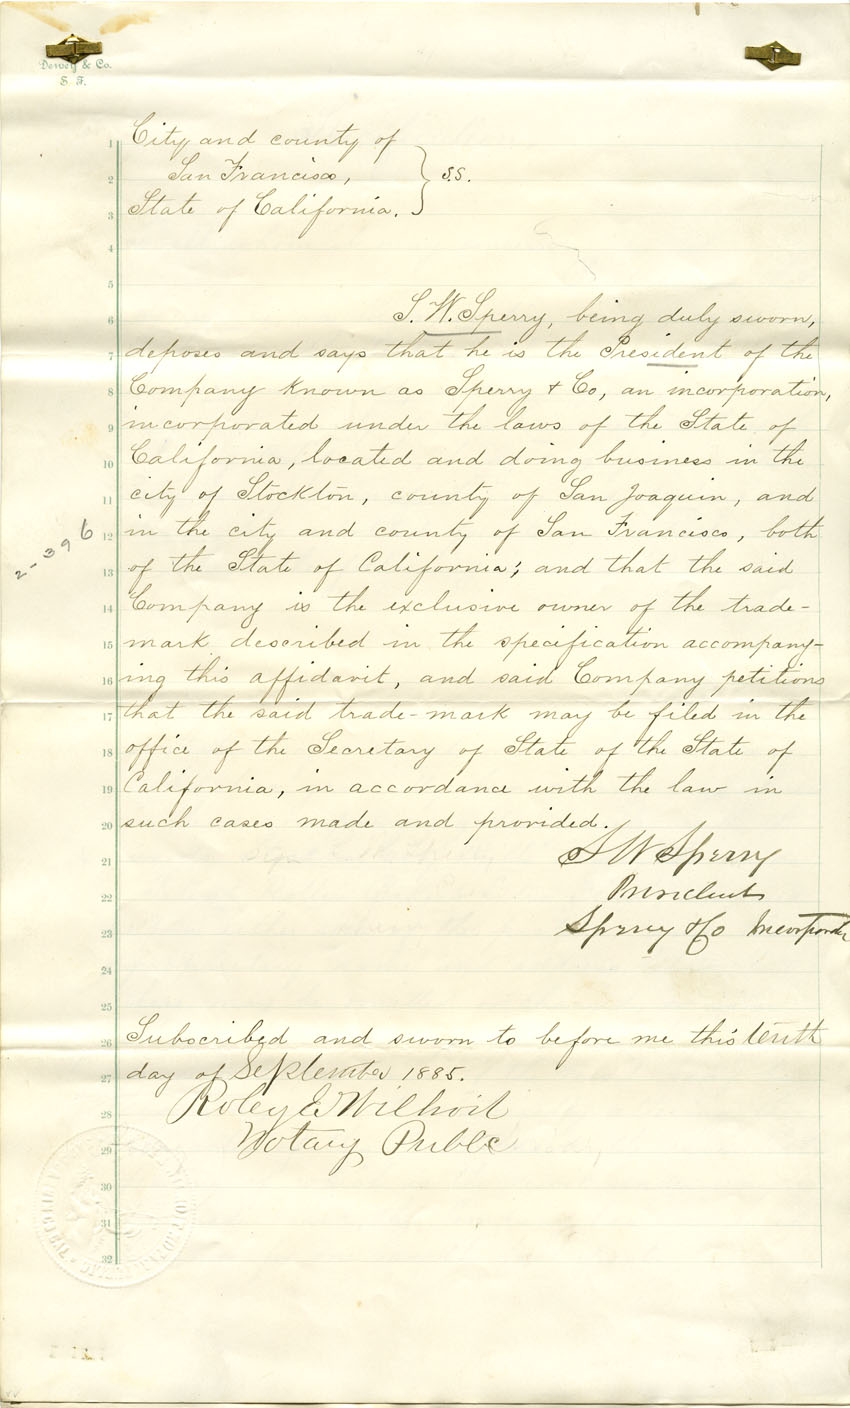 Dewey & Co.
S. F.
City and county of
San Francisco,
State of California. } S.S.
S. W. Sperry, being duly sworn,
deposes and says that he is the President of the
Company known as Sperry & Co, an incorporation,
incorporated under the laws of the State of
California, located and doing business in the
city of Stockton, county of San Joaquin, and
in the city and county of San Francisco, both
of the State of California; and that the said
Company is the exclusive owner of the trade-
mark described in the specification accompany-
ing this affidavit, and said Company petitions
that the said trade-mark may be filed in the
office of the Secretary of State of the State of
California, in accordance with the law in
such cases made and provided.
S W Sperry
President
Sperry & Co Incorporated
Subscribed and sworn to before me this tenth
day of September 1885.
Roley E. Wilhoit
Notary Public
2-396
1
2
3
4
5
6
7
8
9
10
11
12
13
14
15
16
17
18
19
20
21
22
23
24
25
26
27
28
29
30
31
32